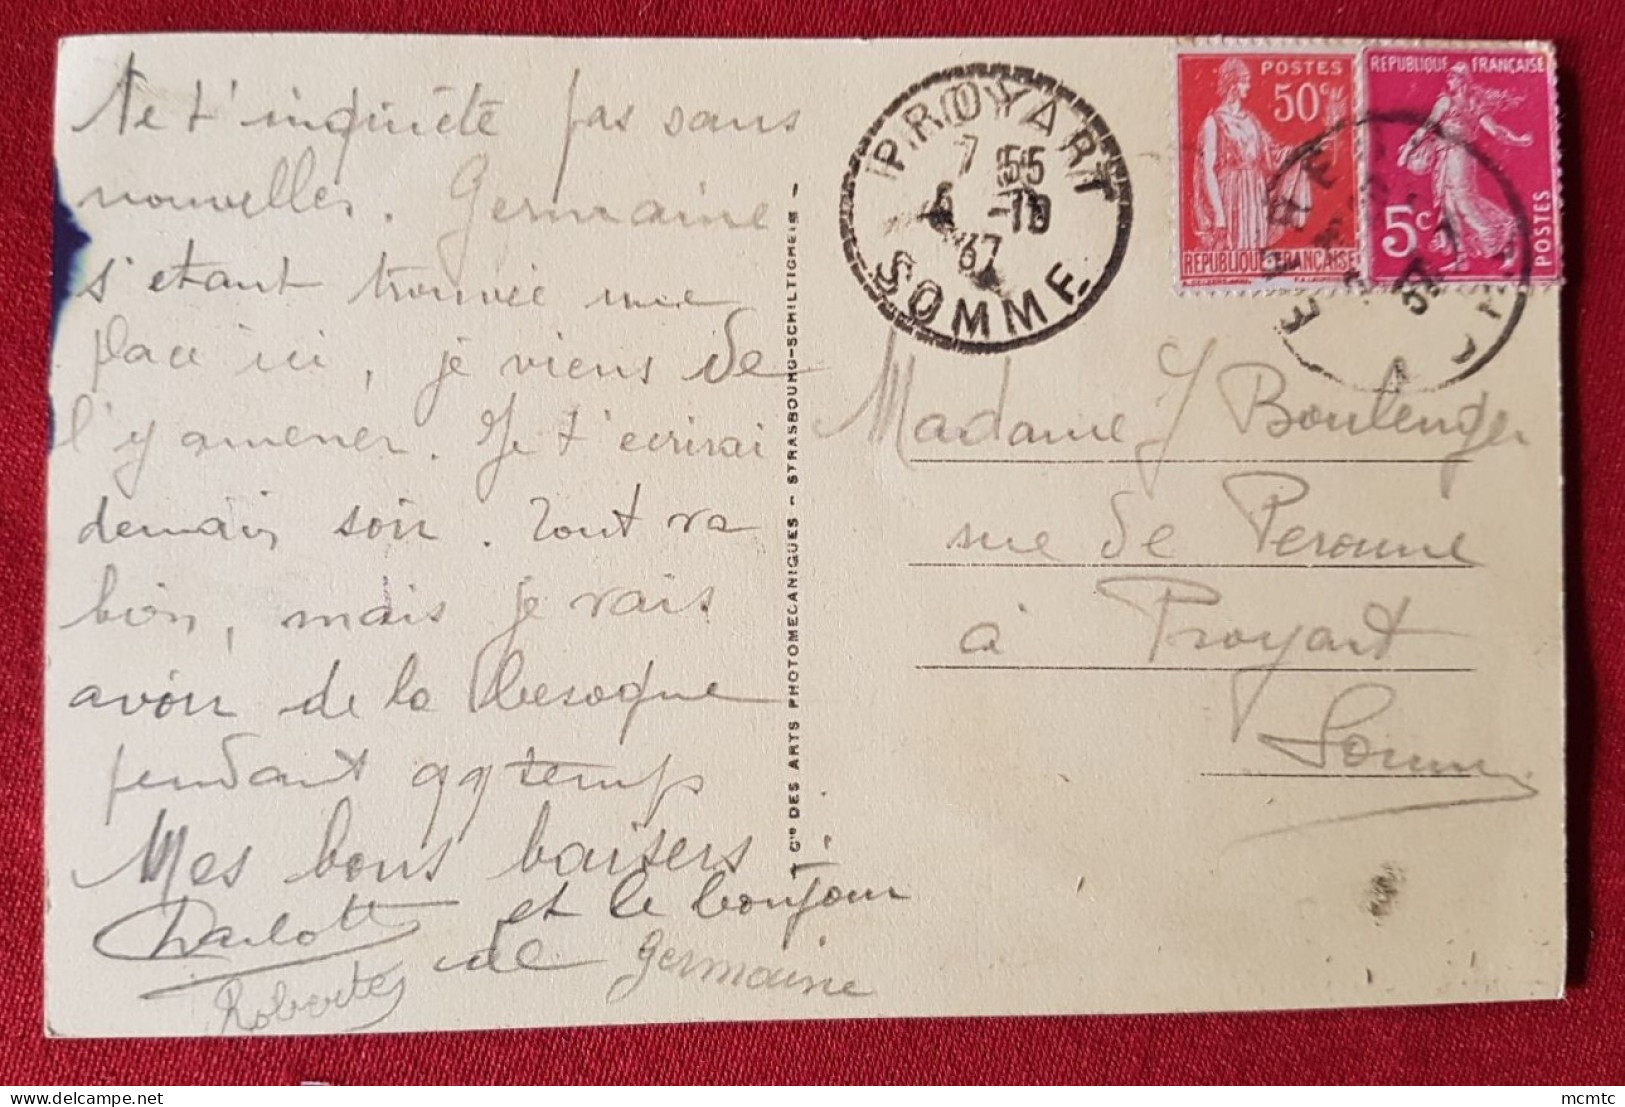 Ne t'inquiéte pas sans
nouvelles. Germaine
s'etant trouvée une
place ici, je viens de
l'y amener. Je t'ecrirai
demain soir. Tout va
bien, mais je vais
avoir de la besogne
pendant qq temps
Mes bons baisers
Charlotte et le bonjour
de Germaine
Roberte
Cie DES ARTS PHOTOMECANIQUES - STRASBOURG-SCHILTIGHEIM -
PROYART
7 55
6 -10
37
SOMME
POSTES
50c
REPUBLIQUE FRANÇAISE
REPUBLIQUE FRANÇAISE
5c
POSTES
37
Madame J Boulenger
rue de Peronne
à Proyart
Somme
mcmtc